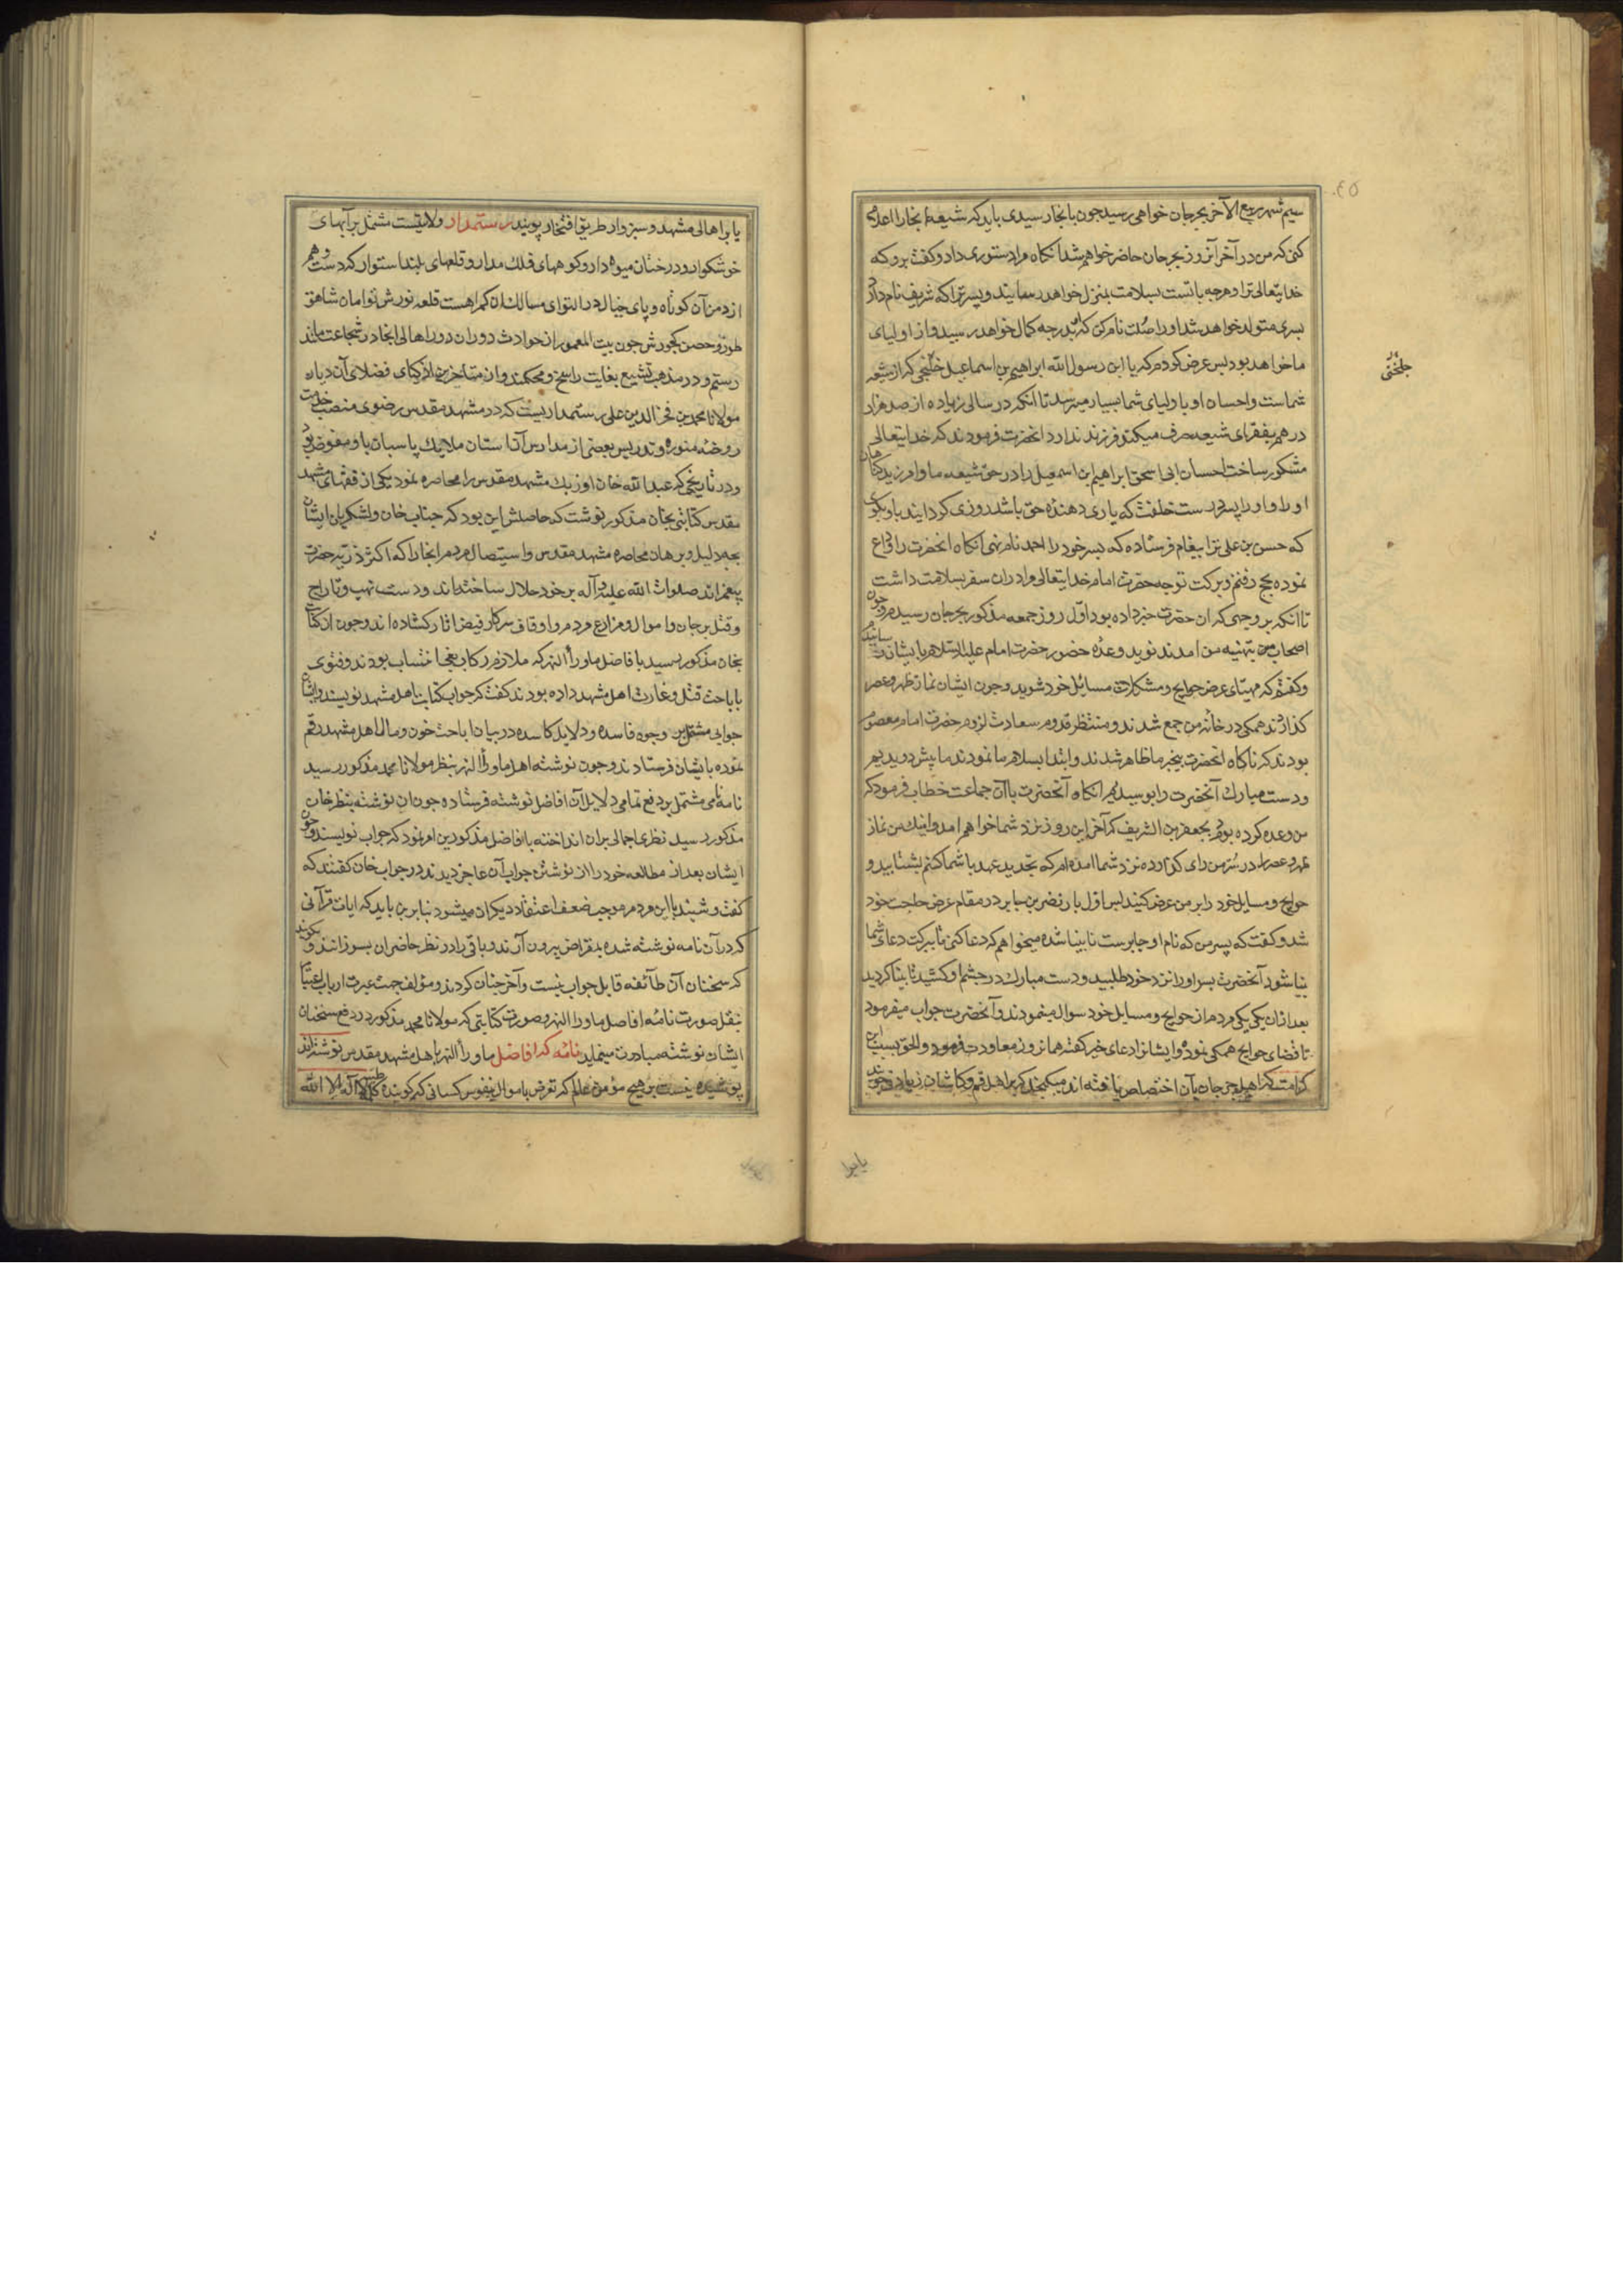 ۴۵
سیم شهر ربیع الآخر بجرجان خواهی رسید چون بانجا رسیدی باید که شیعهٔ انجا را اعلام
کنی که من در آخر آنروز بجرجان حاضر خواهم شد انکاه مرا دستوری داد و کفت برو که
خدایتعالی ترا و هرچه باتست بسلامت بمنزل خواهد رسانید و پسر ترا که شریف نام دارد
پسری متولد خواهد شد او را صلت نام کن که بدرجه کمال خواهد رسید و از اولیای
ما خواهد بود پس عرض کردم که یا ابن رسول الله ابراهیم بن اسماعیل خلنجی که از شیعه
جلختی
شماست و احسان او باولیای شما بسیار میرسد تا انکه در سالی زیاده از صد هزار
درهم بفقرای شیعه صرف میکند و فرزند ندارد انحضرت فرمودند که خدایتعالی
مشکور ساخت احسان ابی اسحق ابراهیم ابن اسمعیل را در حق شیعه ما و امرزید کناهان
او را و او را پسر درست خلقت که یاری دهنده حق باشد روزی کردانید باو بکوی
که حسن بن علی ترا پیغام فرستاده که پسر خود را احمد نام نهی انکاه انحضرت را وداع
نموده بحج رفتم و ببرکت توجه حضرت امام خدایتعالی مرا در ان سفر بسلامت داشت
تا انکه بر وجهی که ان حضرت خبر داده بود اول روز جمعه مذکور بجرجان رسیدم و چون
اصحاب من بتهنیه من امدند نوید وعدهٔ حضور حضرت امام علیه السلام بایشان رسانیدم
و کفتم که مهیای عرض حوایج و مشکلات مسایل خود شوید و چون ایشان نماز ظهر و عصر
کذاردند همکی در خانه من جمع شدند و منتظر قدوم سعادت لزوم حضرت امام معصوم
بودند که ناکاه انحضرت بیخبر ما ظاهر شدند و ابتدا بسلام ما نمودند ما پیش دویدیم
و دست مبارک آنحضرت را بوسیدیم انکاه آنحضرت باآن جماعت خطاب فرمود که
من وعده کرده بودم بجعفر بن الشریف که آخر این روز نزد شما خواهم امد و اینک من نماز
ظهر و عصر را در سر من رای کزارده نزد شما امده ام که تجدید عهد با شما کنم بشتابید و
حوایج و مسایل خود را بر من عرض کنید پس اول بار نضر بن جابر در مقام عرض حاجت خود
شد و کفت که پسر من که نام او جابرست نابینا شده میخواهم که دعا کنی تا ببرکت دعای شما
بینا شود آنحضرت پسر او را نزد خود طلبید و دست مبارک در چشم او کشید تا بینا کردید
بعد ازان یک یک مردم از حوایج و مسایل خود سوال مینمودند و آنحضرت جواب میفرمود
تا قضای حوایج همکی نموده و ایشانرا دعای خیر کفته همانروز معاودت فرمود و الحق بسبب این
کرامت که اهل جرجان بآن اختصاص یافته اند میکنجد که بر اهل قم و کاشان زیادتی جویند
یا برا
یا برا اهالی مشهد و سبزوار طریق افتخار پویند رستمدار ولایتیست مشتمل بر آبهای
خوشکوار و درختان میوه دار و کوههای فلک مدار و قلعهای بلند استوار که دست وهم
از دامن آن کوتاه و پای خیال در التوای مسالک ان کمراهست قلعه نورش توامان شاهق
طور و حصن کجورش چون بیت المعمور از حوادث دوران دور اهالی انجا در شجاعت مانند
رستم و در مذهب تشیع بغایت راسخ و محکمند و از متاخرین اذکیای فضلای آن دیار
مولانا محمد بن فخر الدین علی رستمداریست که در مشهد مقدس رضوی منصب خدمت
روضه منوره و تدریس بعضی از مدارس آن استان ملایک پاسبان باو مفوض بود
و در تاریخی که عبدالله خان اوزبک مشهد مقدس را محاصره نمود یکی از فقهای مشهد
مقدس کتابتی بخان مذکور نوشت که حاصلش این بود که جناب خان و لشکریان ایشان
بچه دلیل و برهان محاصره مشهد مقدس و استیصال مردم انجا را که اکثر ذریه حضرت
پیغمبراند صلوات الله علیه و آله بر خود حلال ساخته اند و دست نهب و تاراج
و قتل بر جان و اموال و مزارع مردم و اوقاف سرکار فیض اثار کشاده اند و چون ان کتابت
بخان مذکور رسید با فاضل ماوراء النهر که ملازم رکاب بغی انتساب بودند و فتوی
باباحت قتل و غارت اهل مشهد داده بودند کفت که جواب کتابت اهل مشهد نویسند و ایشان
جوابی مشتمل بر وجوه فاسده و دلایل کاسده در بیان اباحت خون و مال اهل مشهد رقم
نموده بایشان فرستادند و چون نوشته اهل ماوراء النهر بنظر مولانا محمد مذکور رسید
نامه نامی مشتمل بر دفع تمامی دلایل آن افاضل نوشته فرستاده چون ان نوشته بنظر خان
مذکور رسید نظری اجمالی بران انداخته بافاضل مذکورین امر نمود که جواب نویسند و چون
ایشان بعد از مطالعه خود را از نوشتن جواب آن عاجز دیدند در جواب خان کفتند که
کفت و شنید با این مردم موجب ضعف اعتقاد دیکران میشود بنا برین باید که ایات قرآنی
که در آن نامه نوشته شده بمقراض بیرون آرند و باقی را در نظر حاضران بسوزانند و بکویند
که سخنان آن طائفه قابل جواب نیست و آخر چنان کردند و مؤلف جهت عبرت ارباب اعتبار
بنقل صورت نامه افاضل ماوراء النهر و صورت کتابتی که مولانا محمد مذکور در دفع سخنان
ایشان نوشته مبادرت مینماید نامه که افاضل ماوراء النهر باهل مشهد مقدس نوشته اند
پوشیده نیست بر هیچ مؤمن عالم که تعرض باموال و نفوس کسانی که کوینده کلمه طیبه لا اله الا الله